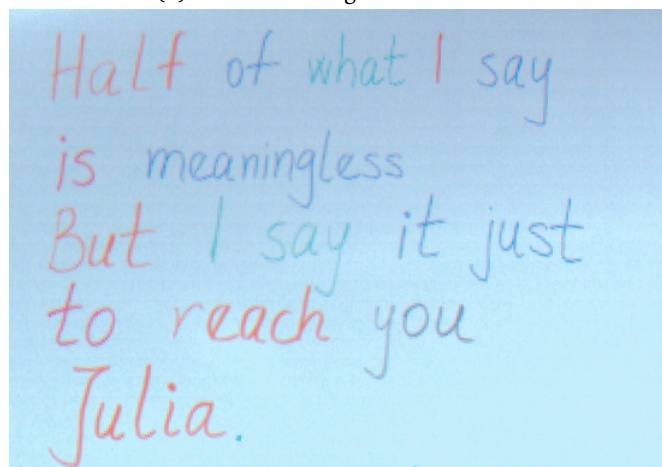 Half of what I say
is meaningless
But I say it just
to reach you
Julia.